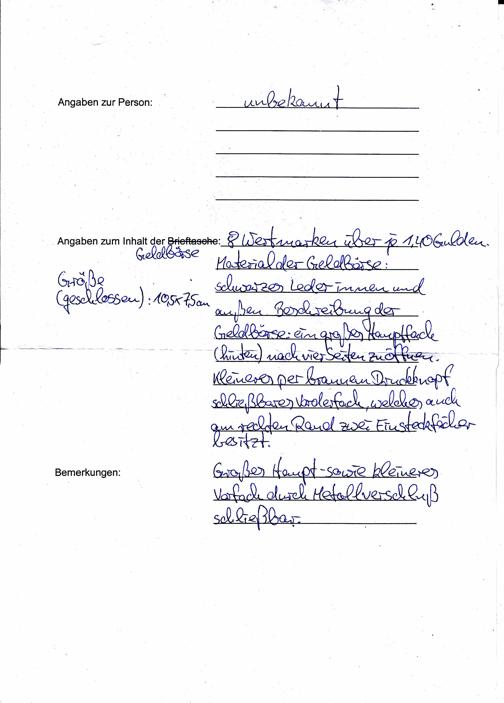 Angaben zur Person: unbekannt
Angaben zum Inhalt der Brieftasche: 8 Wertmarken über je 1,40 Gulden.
Geldbörse
Material der Geldbörse:
Größe
(geschlossen): 10,5x7,5cm
schwarzes Leder innen und
außen. Beschreibung der
Geldbörse: ein großes Hauptfach
(hinten) nach vier Seiten zu öffnen.
Kleineres per braunem Druckknopf
schließbares Vorderfach, welches auch
am rechten Rand zwei Einsteckfächer
besitzt.
Bemerkungen: Großes Haupt- sowie kleineres
Vorfach durch Metallverschluß
schließbar.